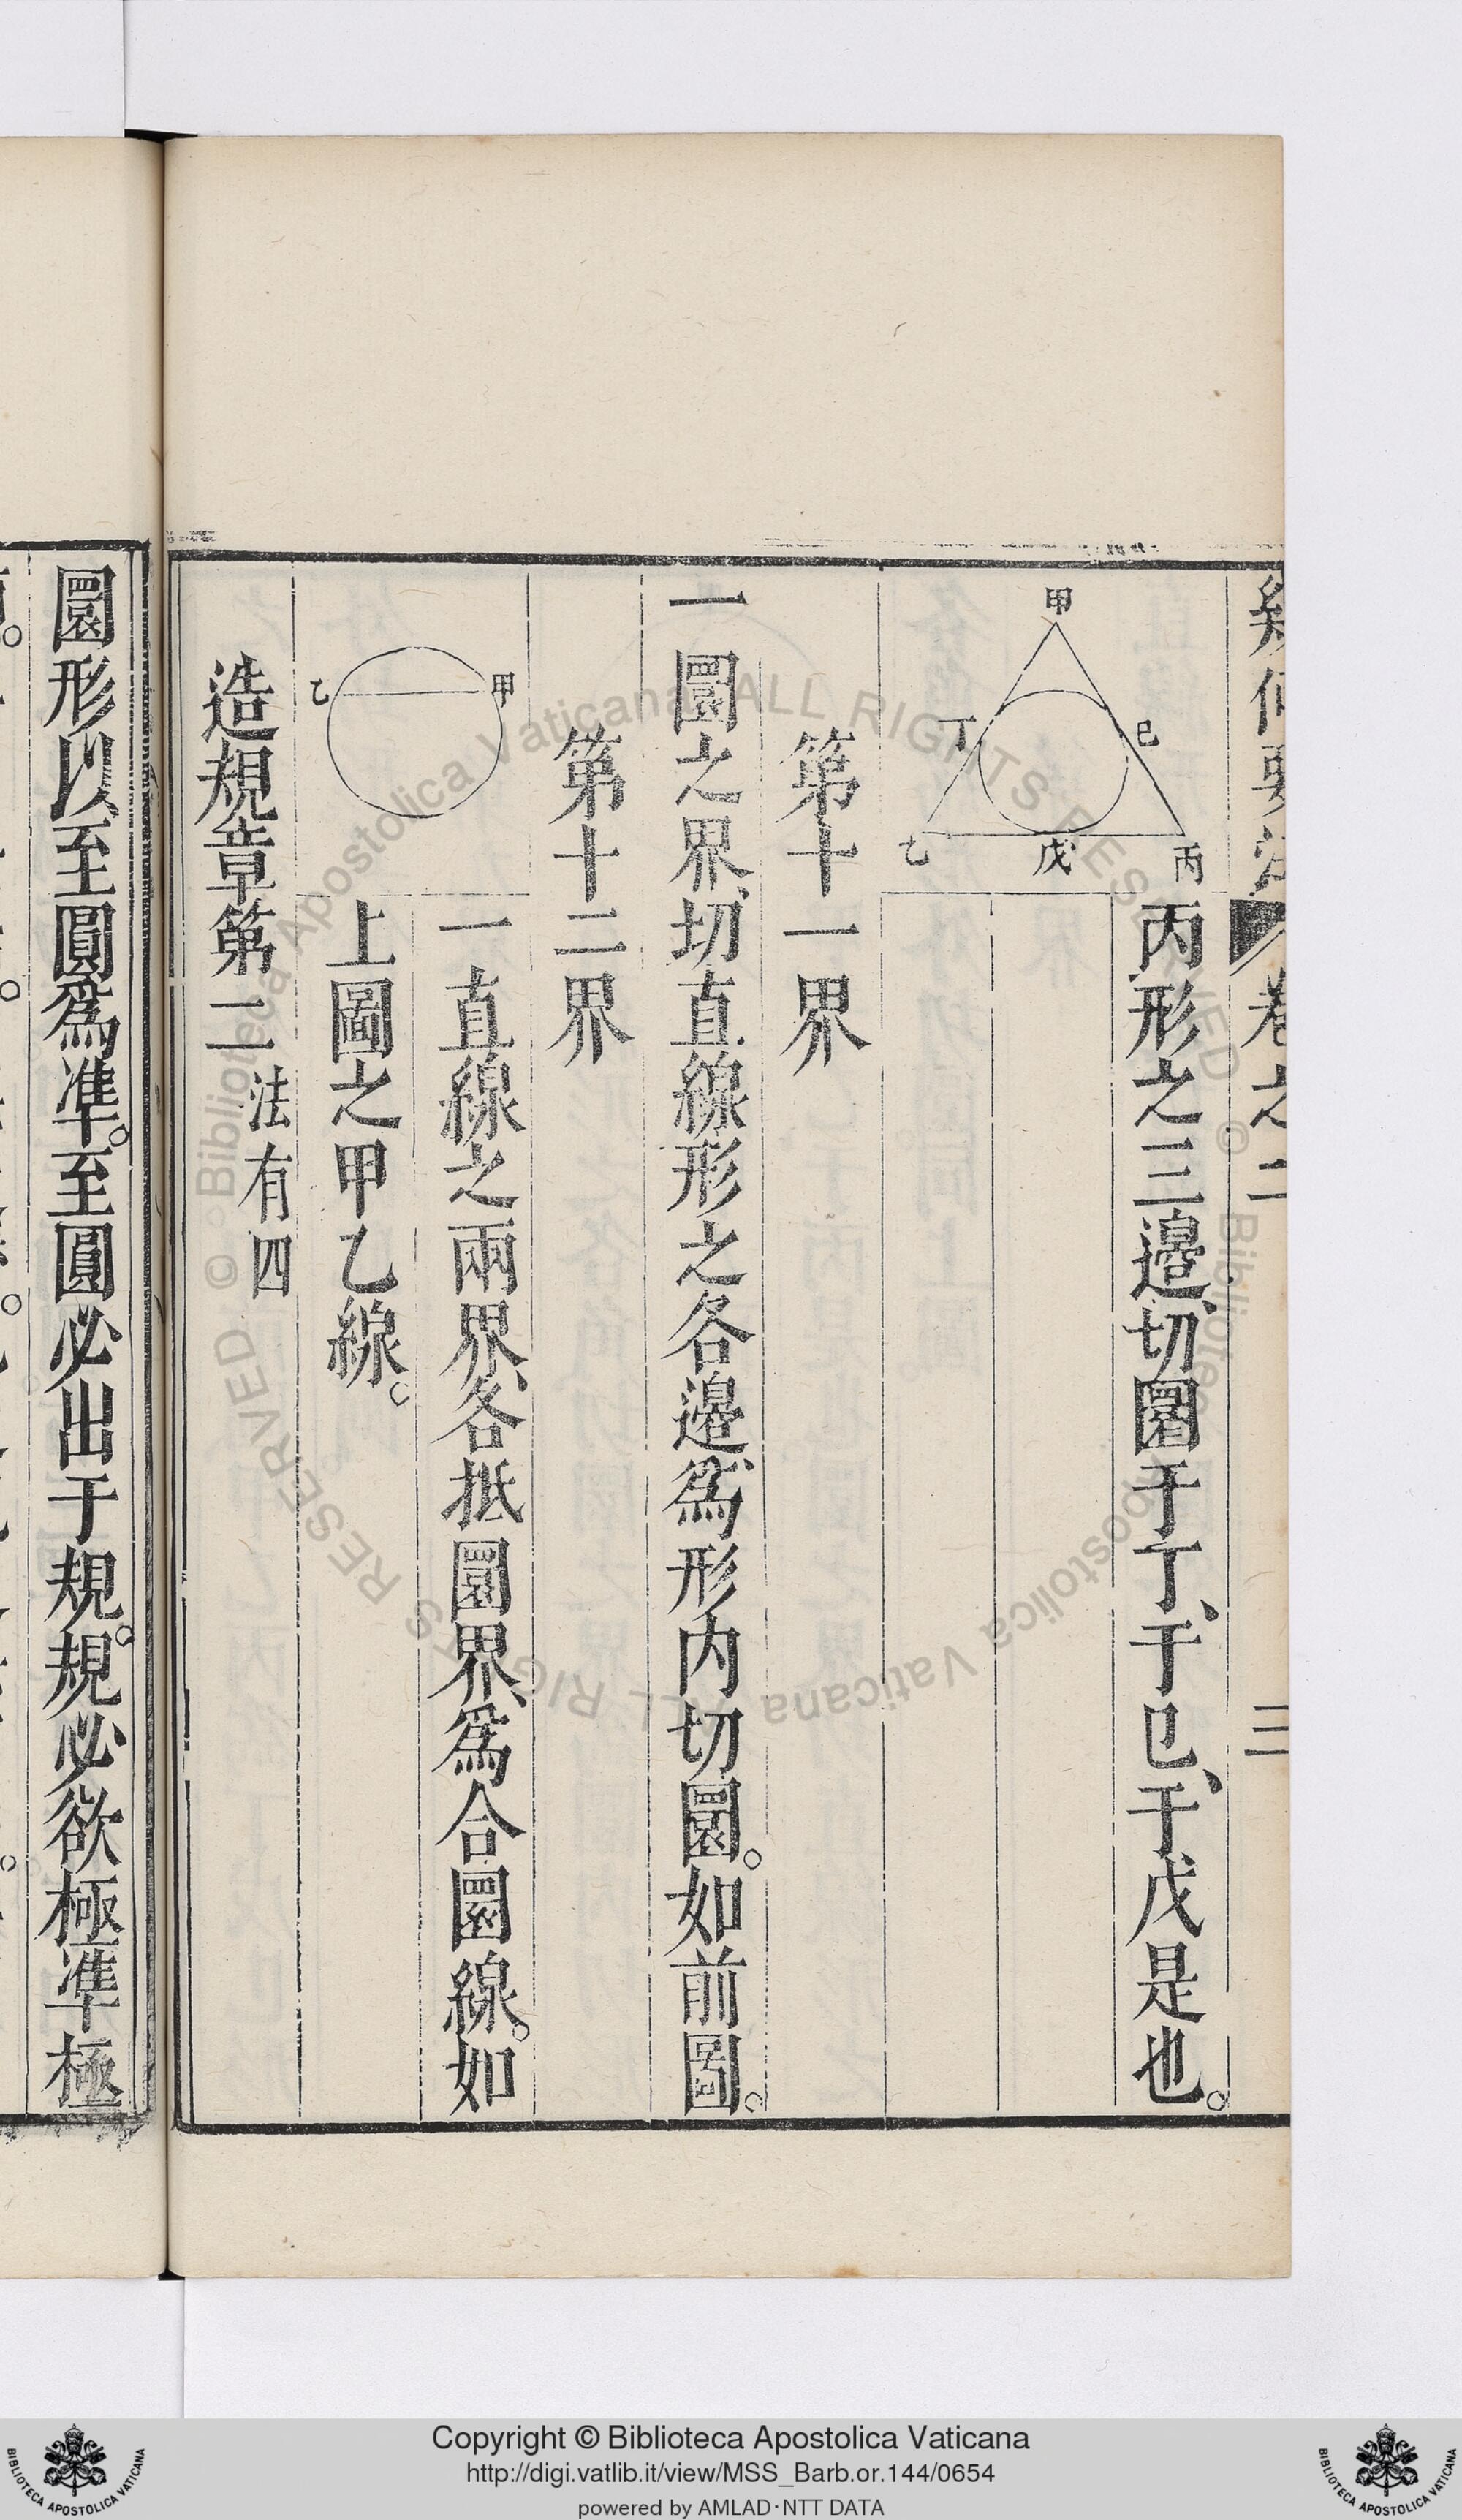 幾何要法 卷之二 三
甲
巳
丁
乙 戊 丙
丙形之三邉、切圜于丁、于巳、于戊是也。
第十一界
一圜之界、切直線形之各邉、爲形内切圜。如前圖。
第十二界
甲
乙
一直線之兩界、各抵圜界、爲合圜線。如
上圖之甲乙線。
造規章第二 法有四
圜形以至圓爲準。至圓必出于規。規必欲極準極
© Biblioteca Apostolica Vaticana ALL RIGHTS RESERVED
© Biblioteca Apostolica Vaticana ALL RIGHTS RESERVED
Copyright © Biblioteca Apostolica Vaticana
http://digi.vatlib.it/view/MSS_Barb.or.144/0654
powered by AMLAD·NTT DATA
BIBLIOTECA APOSTOLICA VATICANA
BIBLIOTECA APOSTOLICA VATICANA